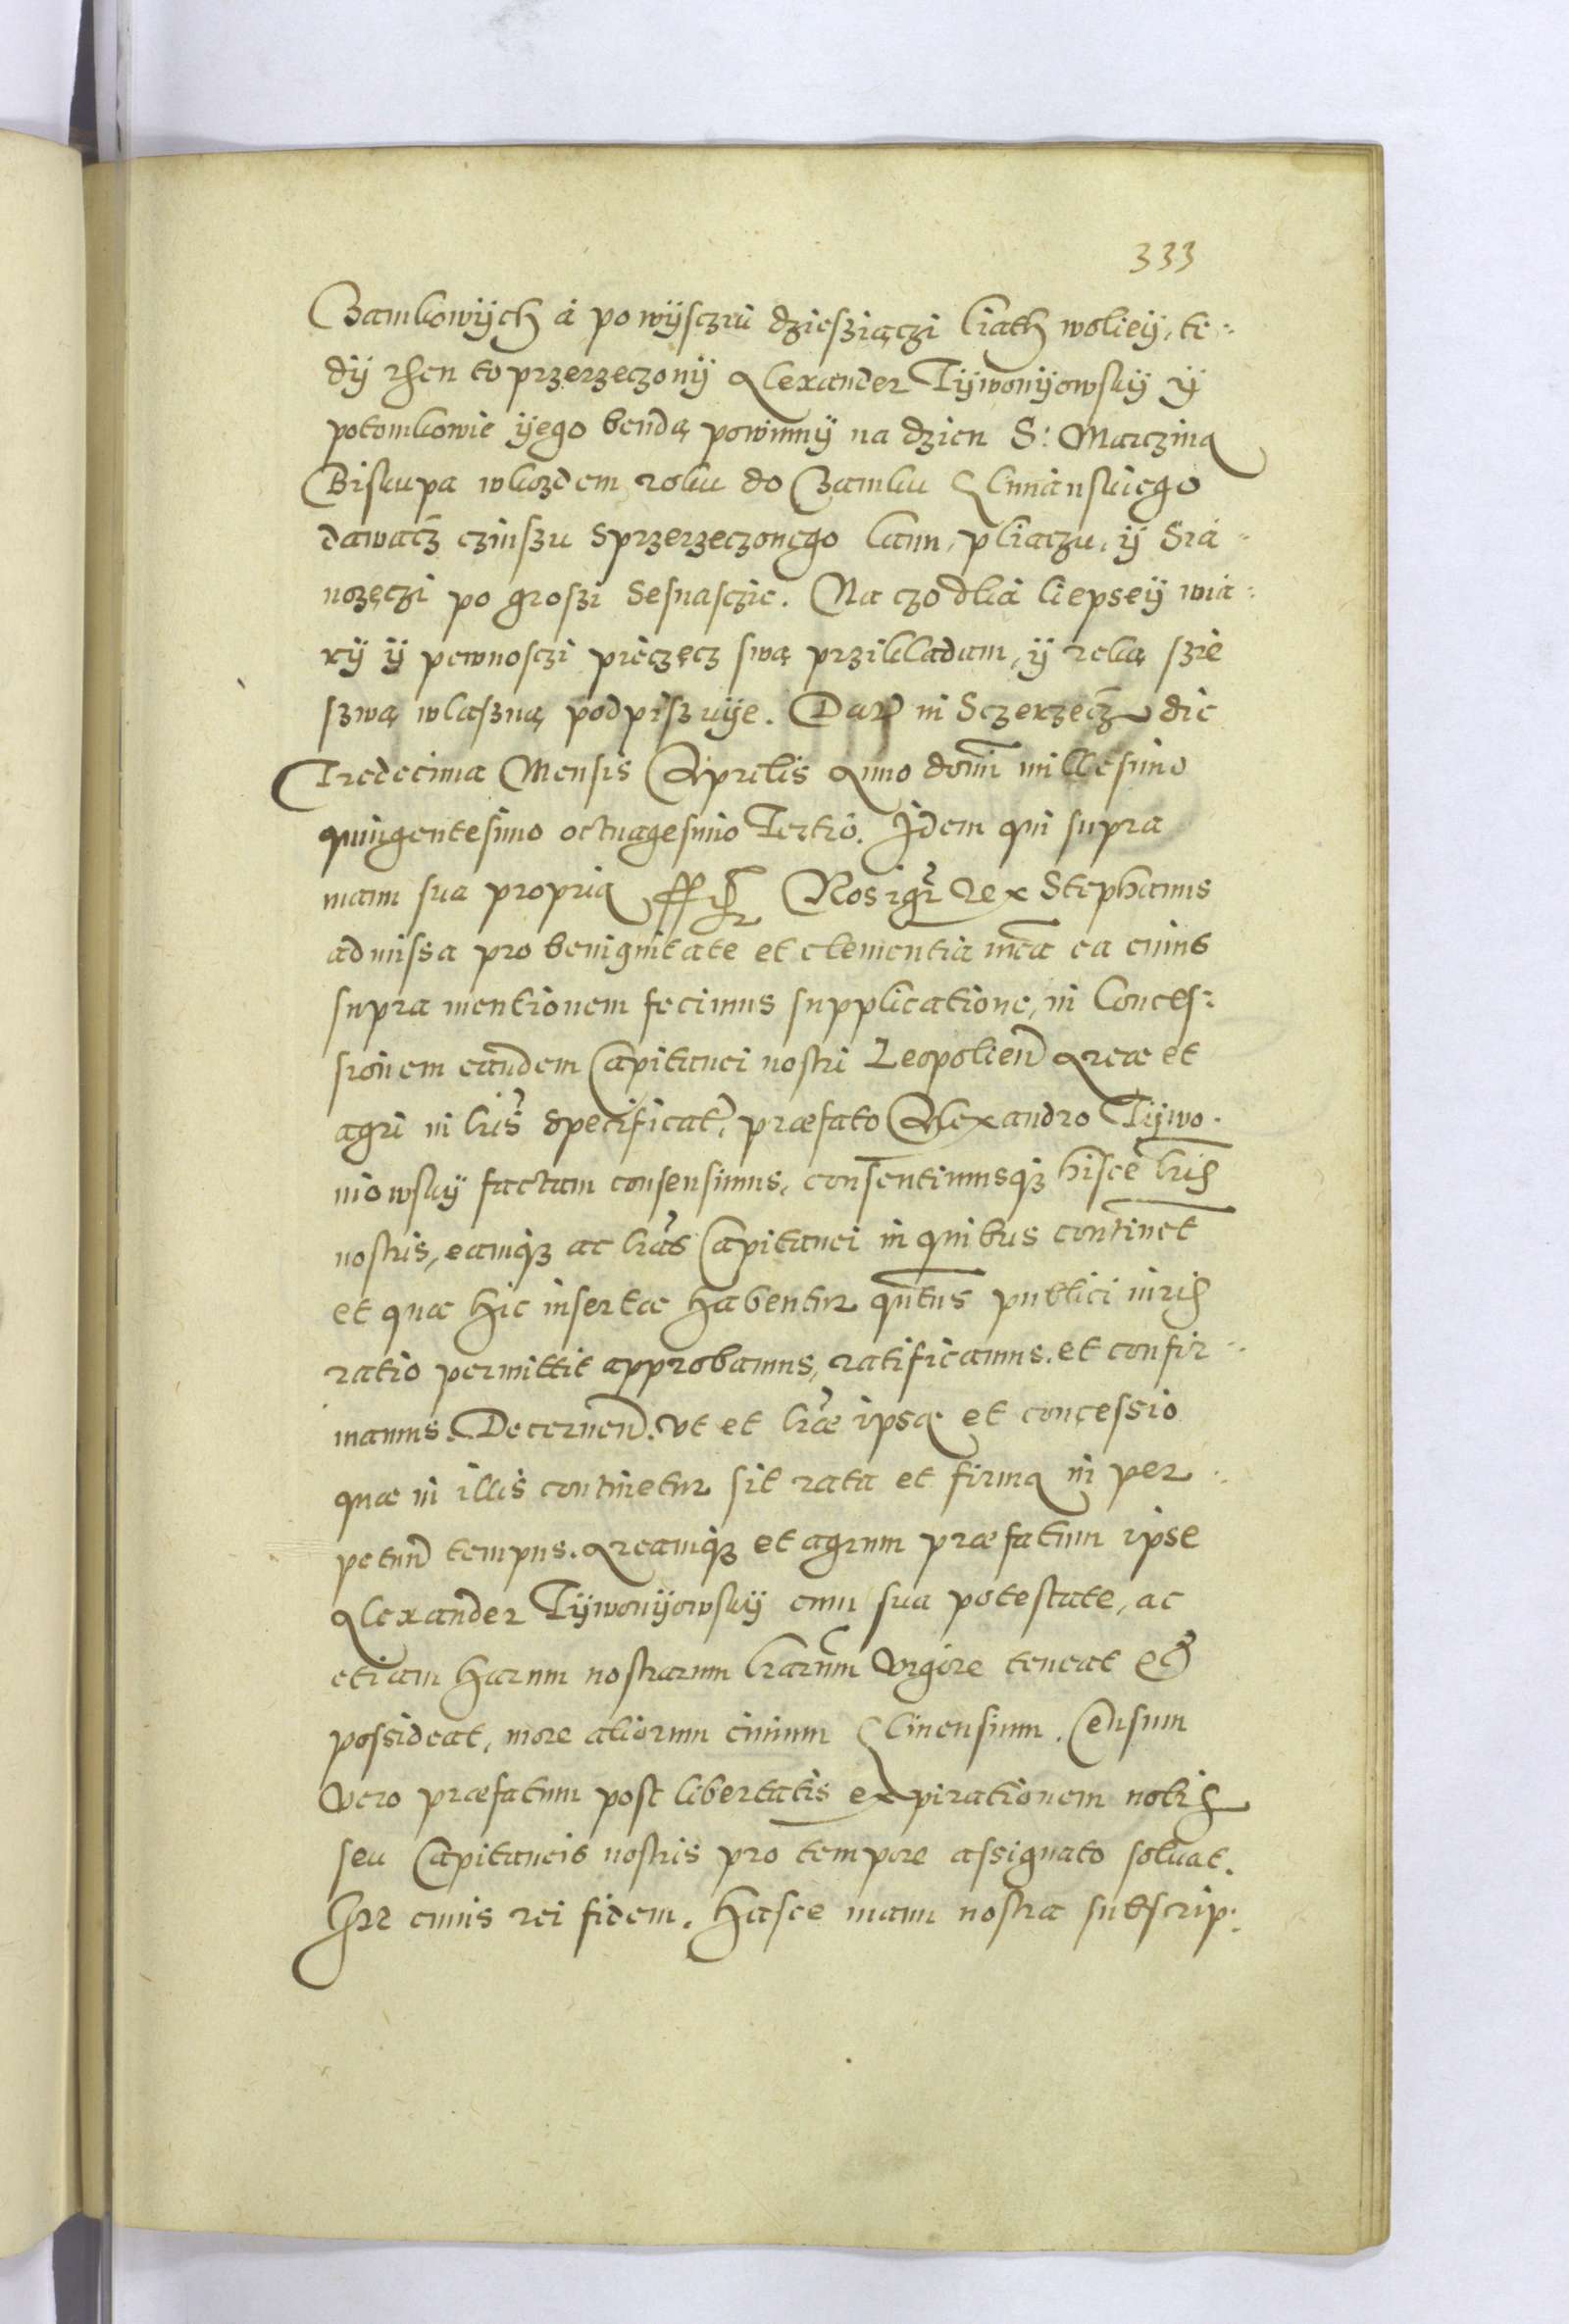 333
Zamkowÿch á po wÿsczrú dziesziączi liath woliey, te-
dÿ then to przerzeczonÿ Alexander Tÿwonÿowskÿ ÿ
potomkowie ÿego bendą powinnÿ na dzien S: Marczina
Biskupa wkozdem roku do Zamku Glinianskiego
dawacz czinszu sprzerzeczonego lann, pliaczu, ÿ Siá-
nozęczi po groszi sesnasczie. Na czo dliá liepseÿ wia-
rÿ ÿ pewnosczi pieczęcz swą przikladam, ÿ reką szie
szwą wlaszną podpiszuÿe. Dat in Sczerzecz die
Tredecima Mensis Aprilis Anno domi millesimo
quingentesimo octuagesimo Tertio. Idem qui supra
manu sua propria Nos igr Rex Stephanus
admissa pro benignitate et clementia nra ea cuius
supra mentionem fecimus supplicatione, in Conces-
sionem eandem Capitanei nostri Leopolien Areæ et
agri in lris specificat, præfato Alexandro Tÿwo-
niowskÿ factam consensimus, consentimusq hisce lris
nostris, eamq ac lras Capitanei in quibus continet
et quæ hic insertæ habentur qntus publici iuris
ratio permittit approbamus, ratificamus et confir-
mamus. Decernen. vt et lræ ipsæ et concessio
quæ in illis continetur sit rata et firma in per-
petuu tempus. Areamq et agrum præfatum ipse
Alexander Tÿwonÿowskÿ cum sua potestate, ac
etiam harum nostrarum lrarum vigore teneat et
possideat, more aliorum ciuium Glinensium. Censum
vero præfatum post libertatis expirationem nobis
seu Capitaneis nostris pro tempore assignato soluat.
In cuius rei fidem. Hasce manu nostra subscrip-